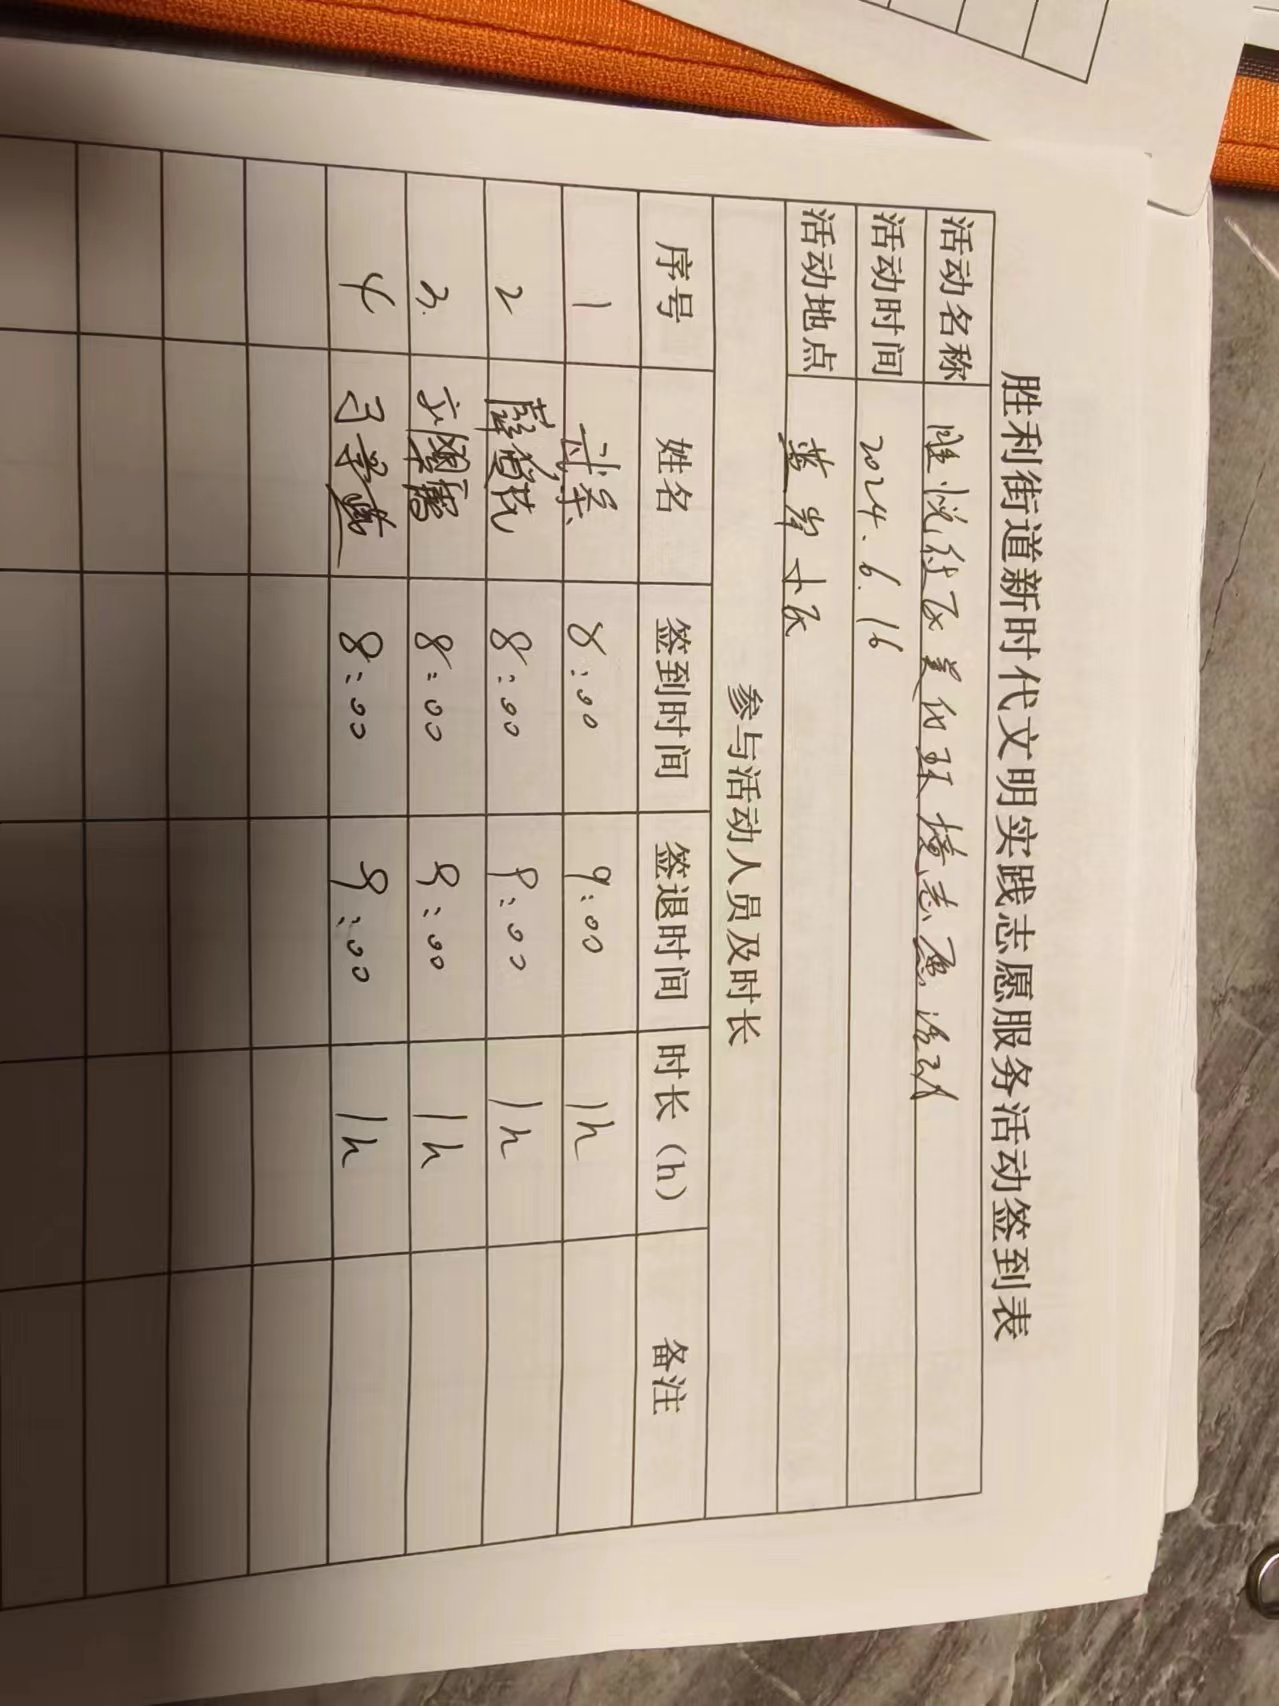 胜利街道新时代文明实践志愿服务活动签到表
活动名称 唯悦社区美化环境志愿活动
活动时间 2024.6.16
活动地点 蓝岸小区
参与活动人员及时长
序号 姓名 签到时间 签退时间 时长（h） 备注
1 8:00 9:00 1h
2 8:00 9:00 1h
3. 刘 8:00 9:00 1h
4 8:00 9:00 1h